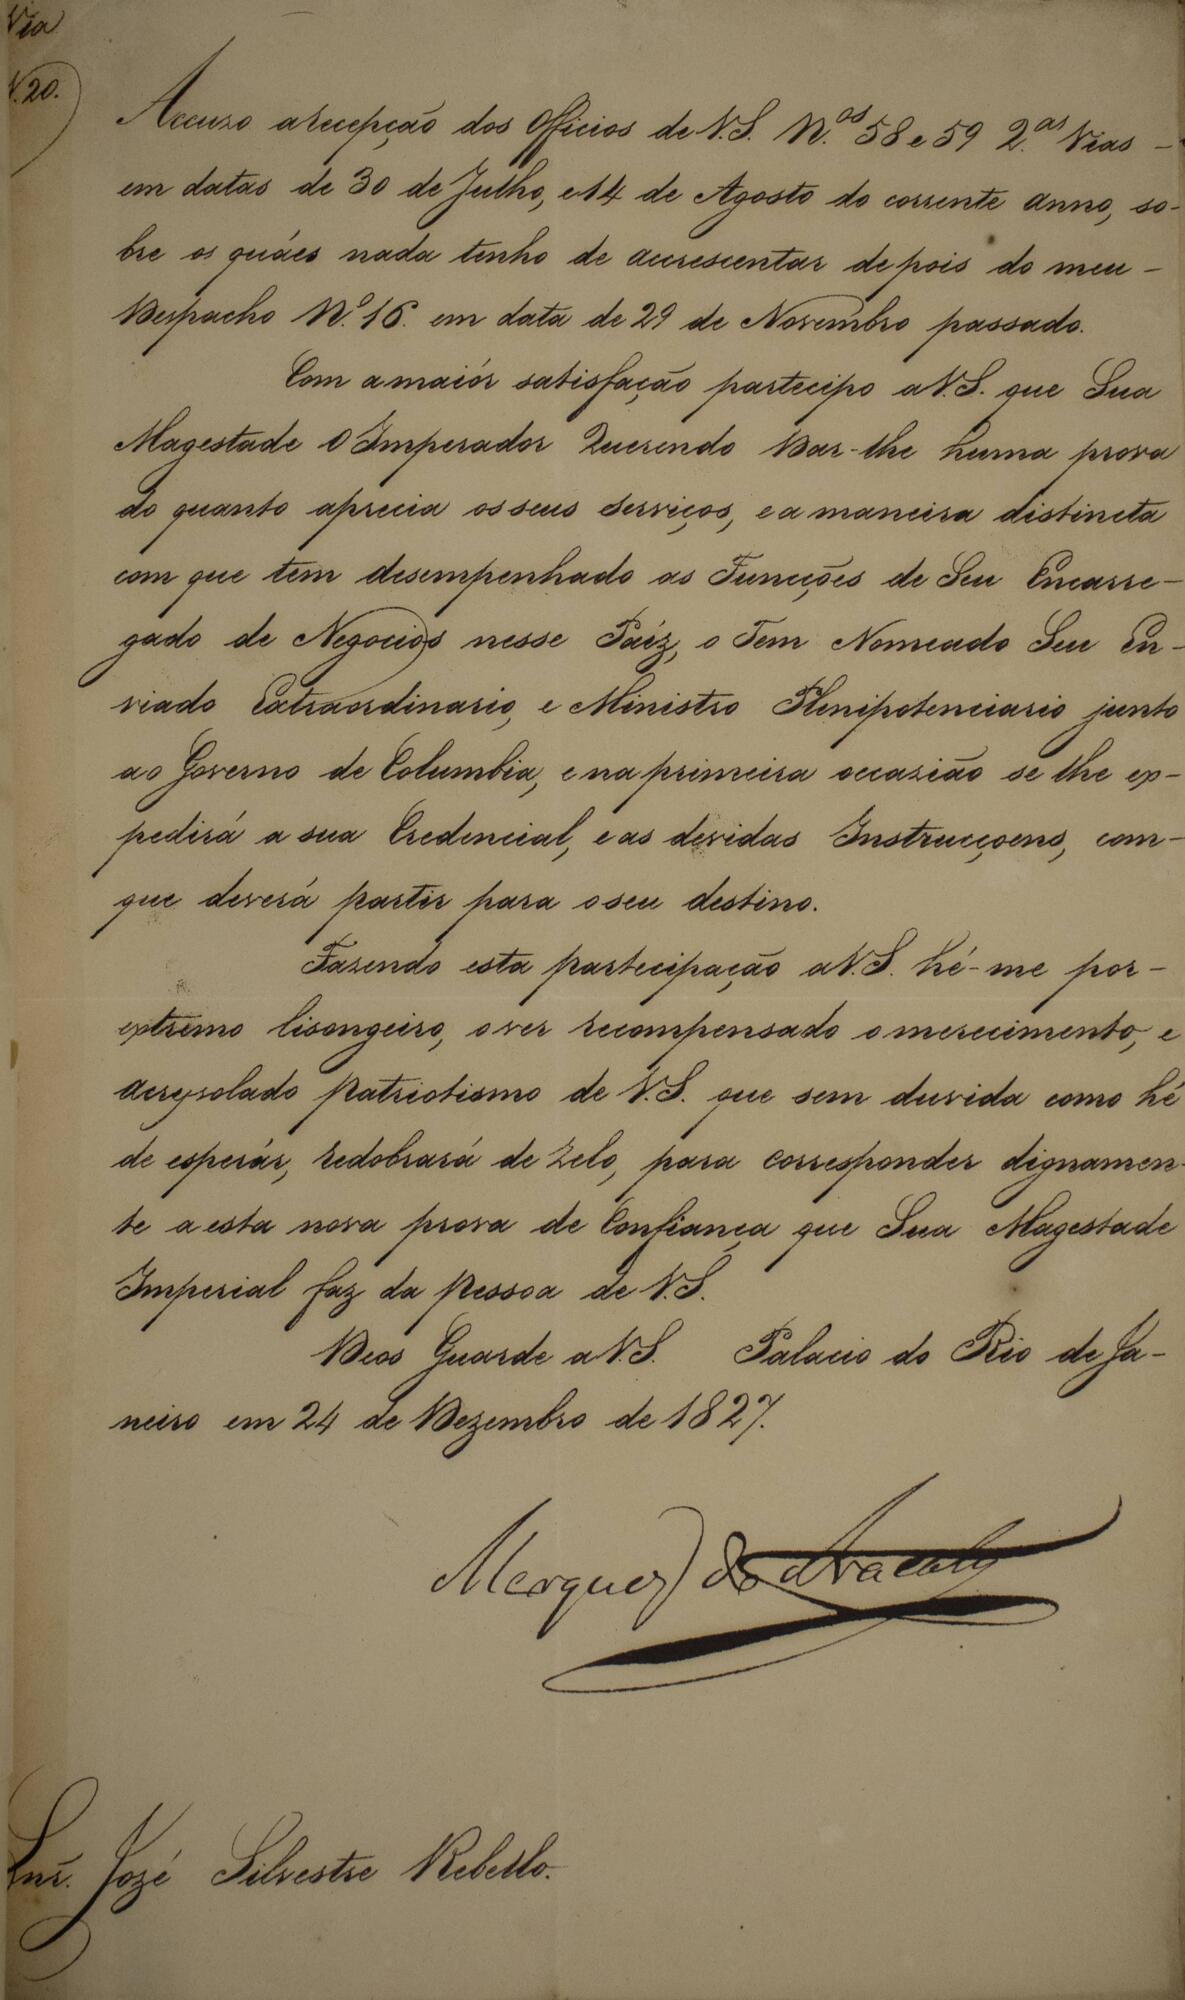 Via
N. 20.
Accuso a recepção dos Officios de V.S. N.os 58 e 59 2.as Vias -
em datas de 30 de Julho, e 14 de Agosto do corrente anno, so-
bre os quáes nada tenho de accrescentar depois do meu -
Despacho N.o 16. em data de 29 de Novembro passado.
Com a maiór satisfação partecipo a V.S. que Sua
Magestade O Imperador Querendo Dar-lhe huma prova
do quanto aprecia os seus serviços, e a maneira distincta
com que tem desempenhado as Funcções de Seu Encarre-
gado de Negocios nesse Paíz, o Tem Nomeado Seu En-
viado Extraordinario, e Ministro Plenipotenciario junto
ao Governo de Columbia, e na primeira occazião se lhe ex-
pedirá a sua Credencial, e as devidas Instrucçoens, com-
que deverá partir para o seu destino.
Fazendo esta partecipação a V.S. hé-me por-
extremo lisongeiro, o ver recompensado o merecimento, e
acrysolado patriotismo de V.S. que sem duvida como hé
de esperár, redobrará de zelo, para corresponder dignamen-
te a esta nova prova de Confiança que Sua Magestade
Imperial faz da pessoa de V.S.
Deos Guarde a V.S. Palacio do Rio de Ja-
neiro em 24 de Dezembro de 1827.
Marquez do Aracaty
Snr. Jozé Silvestre Rebello.